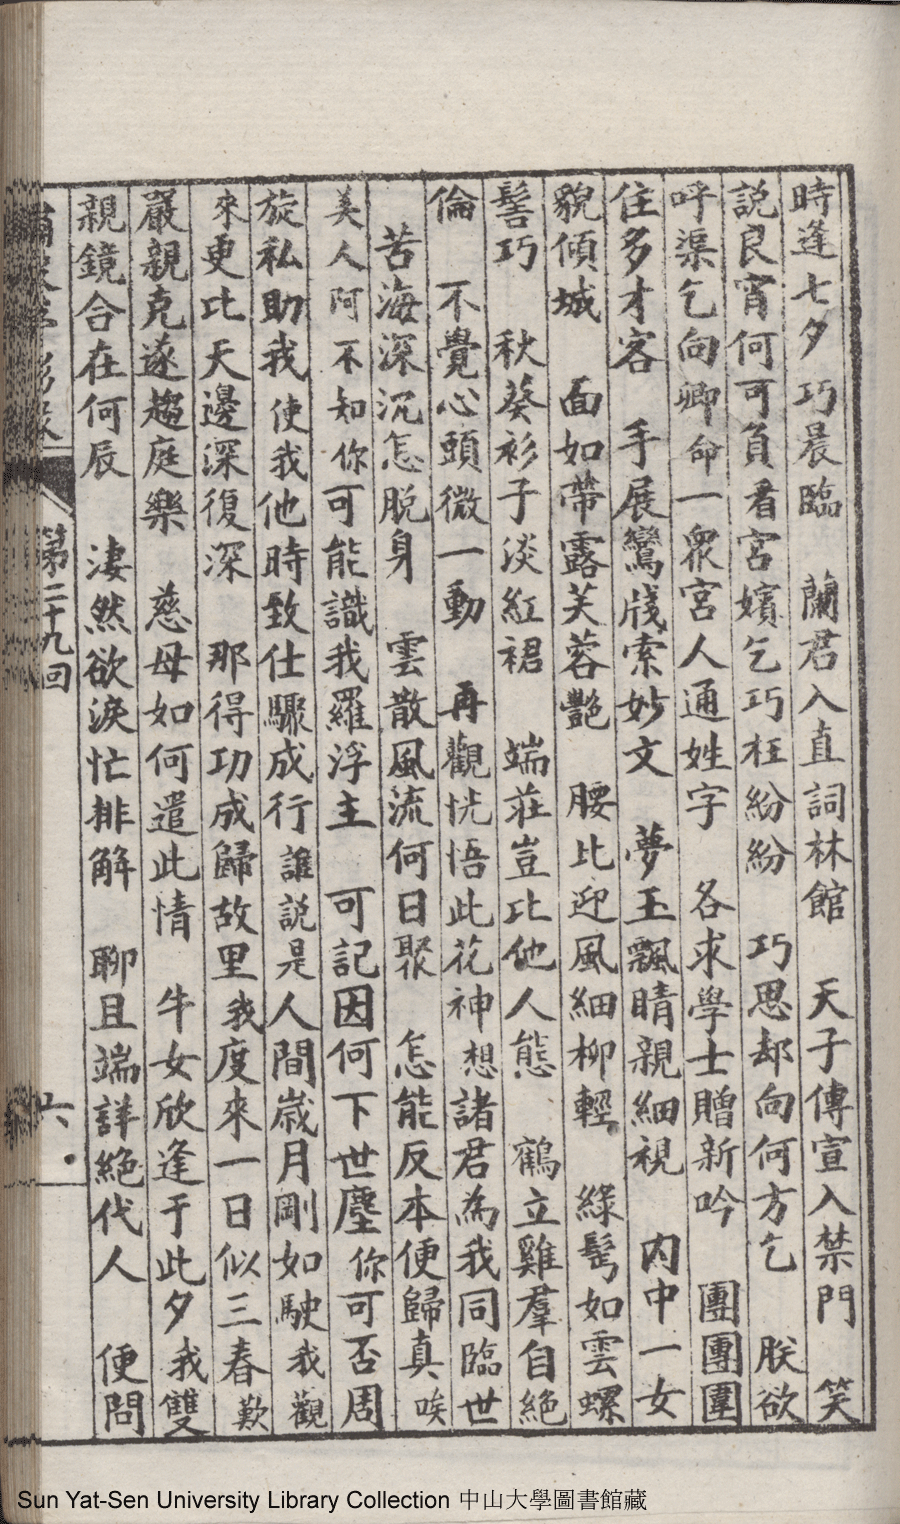 時逢七夕巧晨臨　蘭君入直詞林館　天子傳宣入禁門　笑
説良宵何可負看宮嬪乞巧枉紛紛　巧思却向何方乞　朕欲
呼渠乞向卿命一眾宮人通姓字　各求學士贈新吟　團團圍
住多才客　手展鸞牋索妙文　夢玉飄睛親細視　內中一女
貌傾城　面如帶露芙蓉艷　腰比迎風細柳輕　綠髩如雲螺
髻巧　秋葵衫子淡紅裙　端莊豈比他人態　鶴立雞羣自絕
倫　不覺心頭微一動　再觀恍悟此花神想諸君為我同臨世
苦海深沉怎脫身　雲散風流何日聚　怎能反本便歸真唉
美人阿不知你可能識我羅浮主　可記因何下世塵你可否周
旋私助我使我他時致仕驟成行誰説是人間歲月剛如駛我觀
來更比天邊深復深　那得功成歸故里我度來一日似三春歎
嚴親克遂趨庭樂　慈母如何遣此情　牛女欣逢于此夕我雙
親鏡合在何辰　淒然欲淚忙排解　聊且端詳絕代人　便問
第二十九回
六
Sun Yat-Sen University Library Collection 中山大學圖書館藏